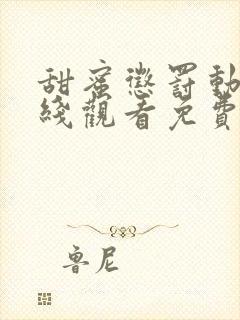 甜蜜懲罰動
綫觀看免費
魯尼